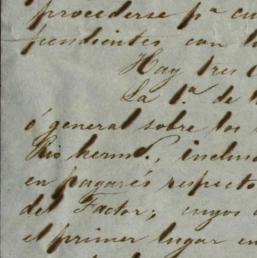 procederse pª cu
pendientes con l
Hay tres
La 1.ª de
ó general sobre los
Rio hermº., inclu
en pagarés respecto
del Factor; cuyos
el primer lugar en